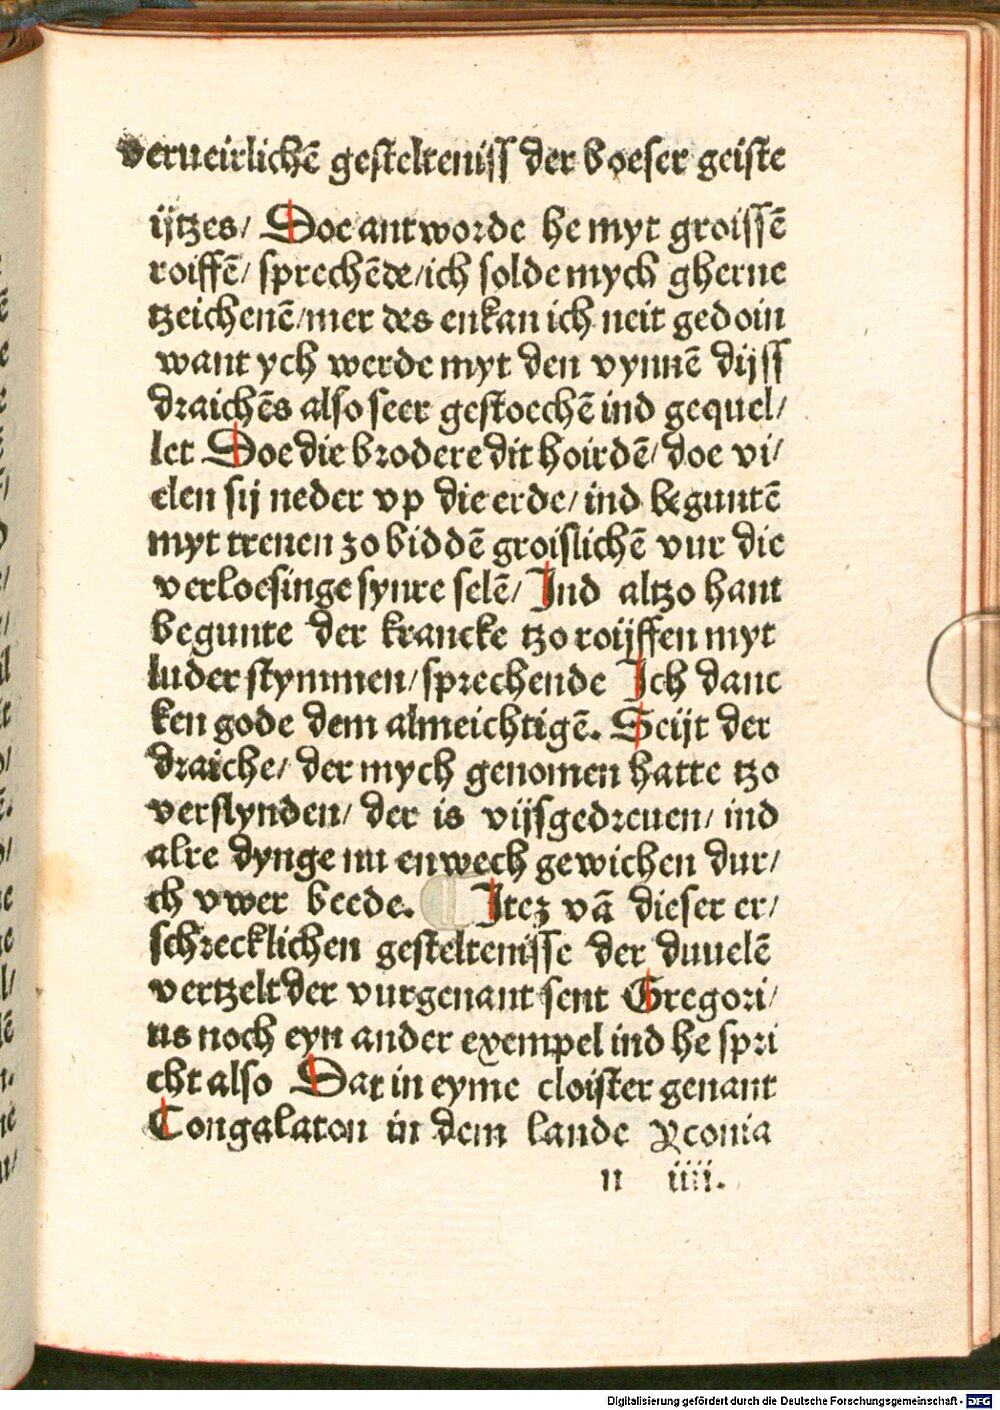 verueirlichē gesteltenisſ der boeser geiste
ijtzes/ Doe antworde he myt groissē
roiffē/ sprechēde/ich solde mych gherne
tzeichenē/mer des enkan ich neit gedoin
want ych werde myt den vynnē dijsſ
draichēs also seer gestoechē ind gequel/
let Doe die brodere dit hoirdē/ doe vi/
elen sij neder vp die erde/ ind beguntē
myt trenen zo biddē groislichē vur die
verloesinge synre selē/ Ind altzo hant
begunte der krancke tzo roijffen myt
luder stymmen/ sprechende Ich danc
ken gode dem almeichtigē. Seijt der
draiche/ der mych genomen hatte tzo
verslynden/ der is vijsgedreuen/ ind
alre dynge nu enwech gewichen dur/
ch vwer beede. Itez vā dieser er/
schrecklichen gesteltenisse der duuelē
vertzelt der vurgenant sent Gregori/
us noch eyn ander exempel ind he spri
cht also Dat in eyme cloister genant
Congalaton in dem lande ꝛconia
n iiii.
Digitalisierung gefördert durch die Deutsche Forschungsgemeinschaft - DFG